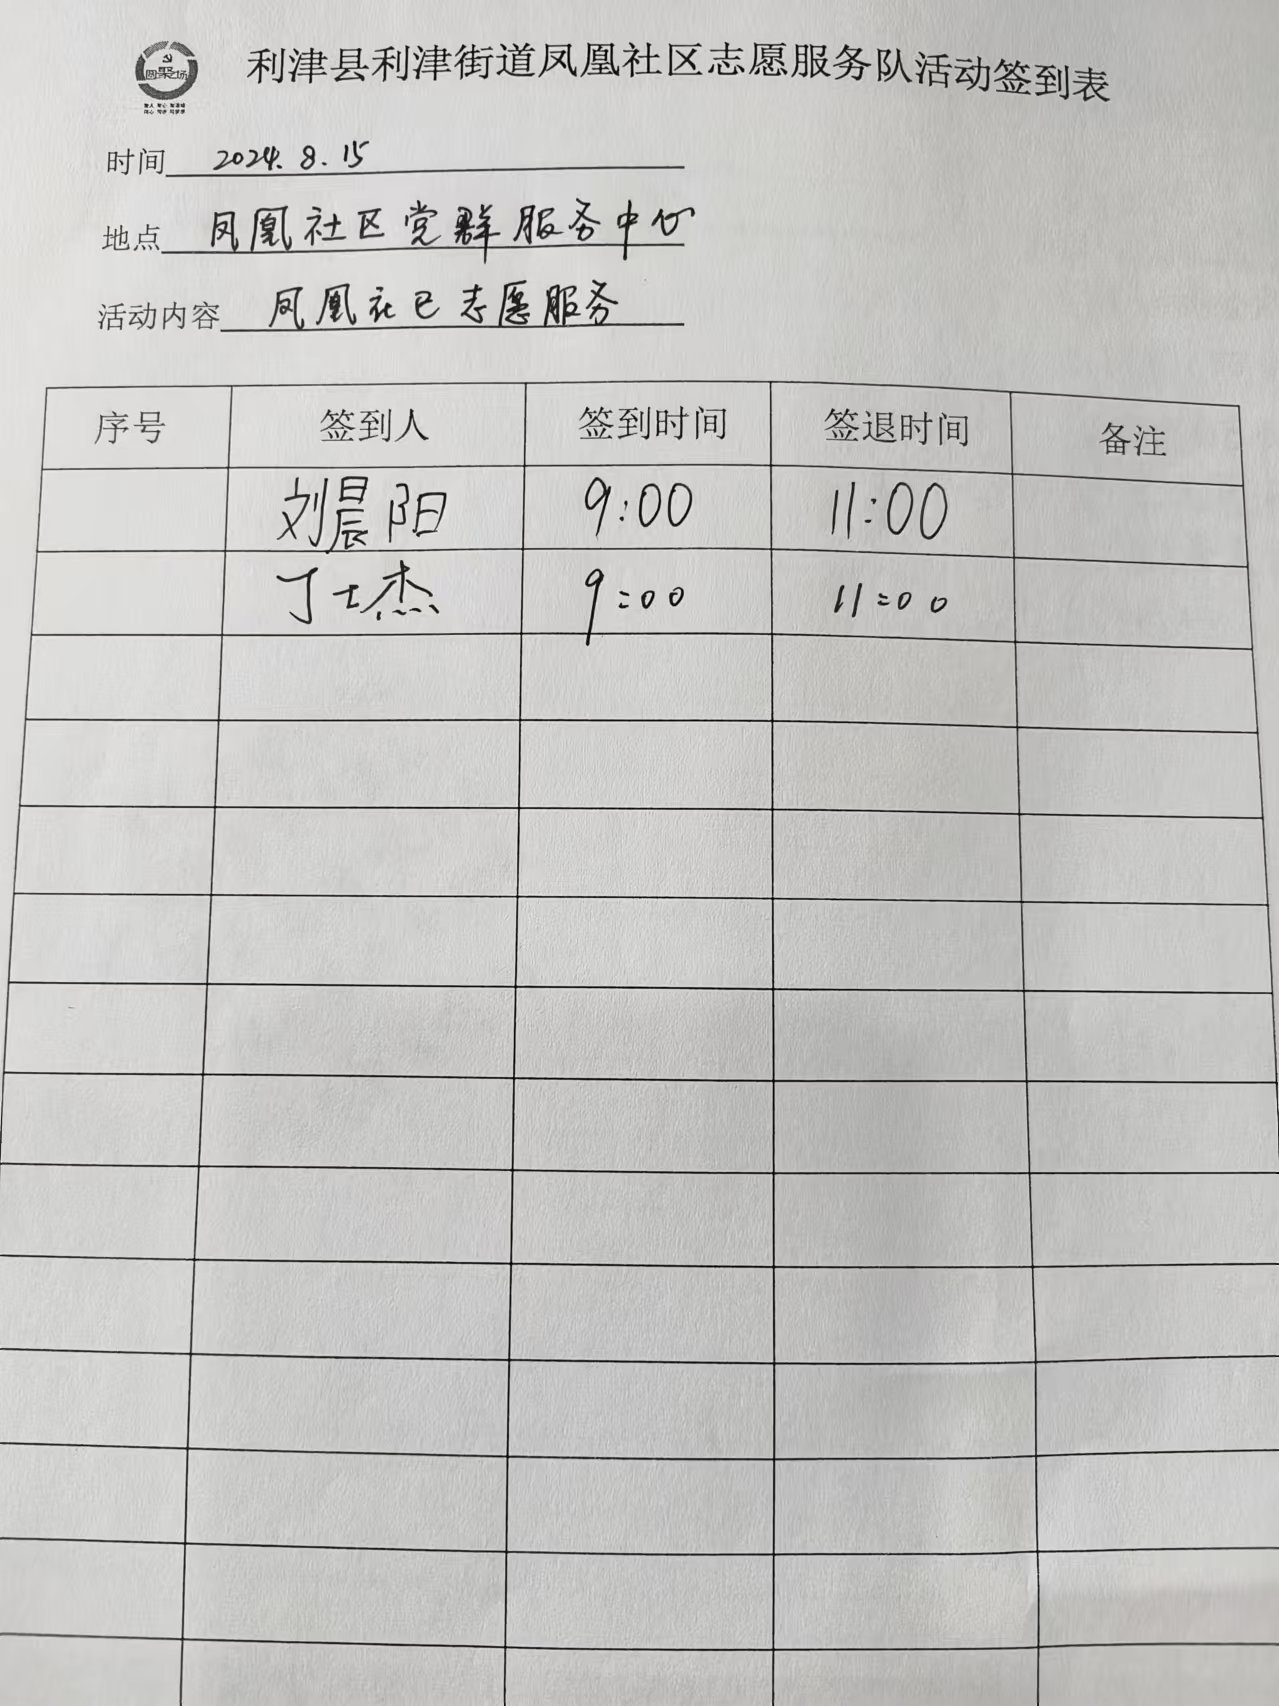 圆聚之场
利津县利津街道凤凰社区志愿服务队活动签到表
时间 2024.8.15
地点 凤凰社区党群服务中心
活动内容 凤凰社区志愿服务
序号 签到人 签到时间 签退时间 备注
刘晨阳 9:00 11:00
丁士杰 9:00 11:00